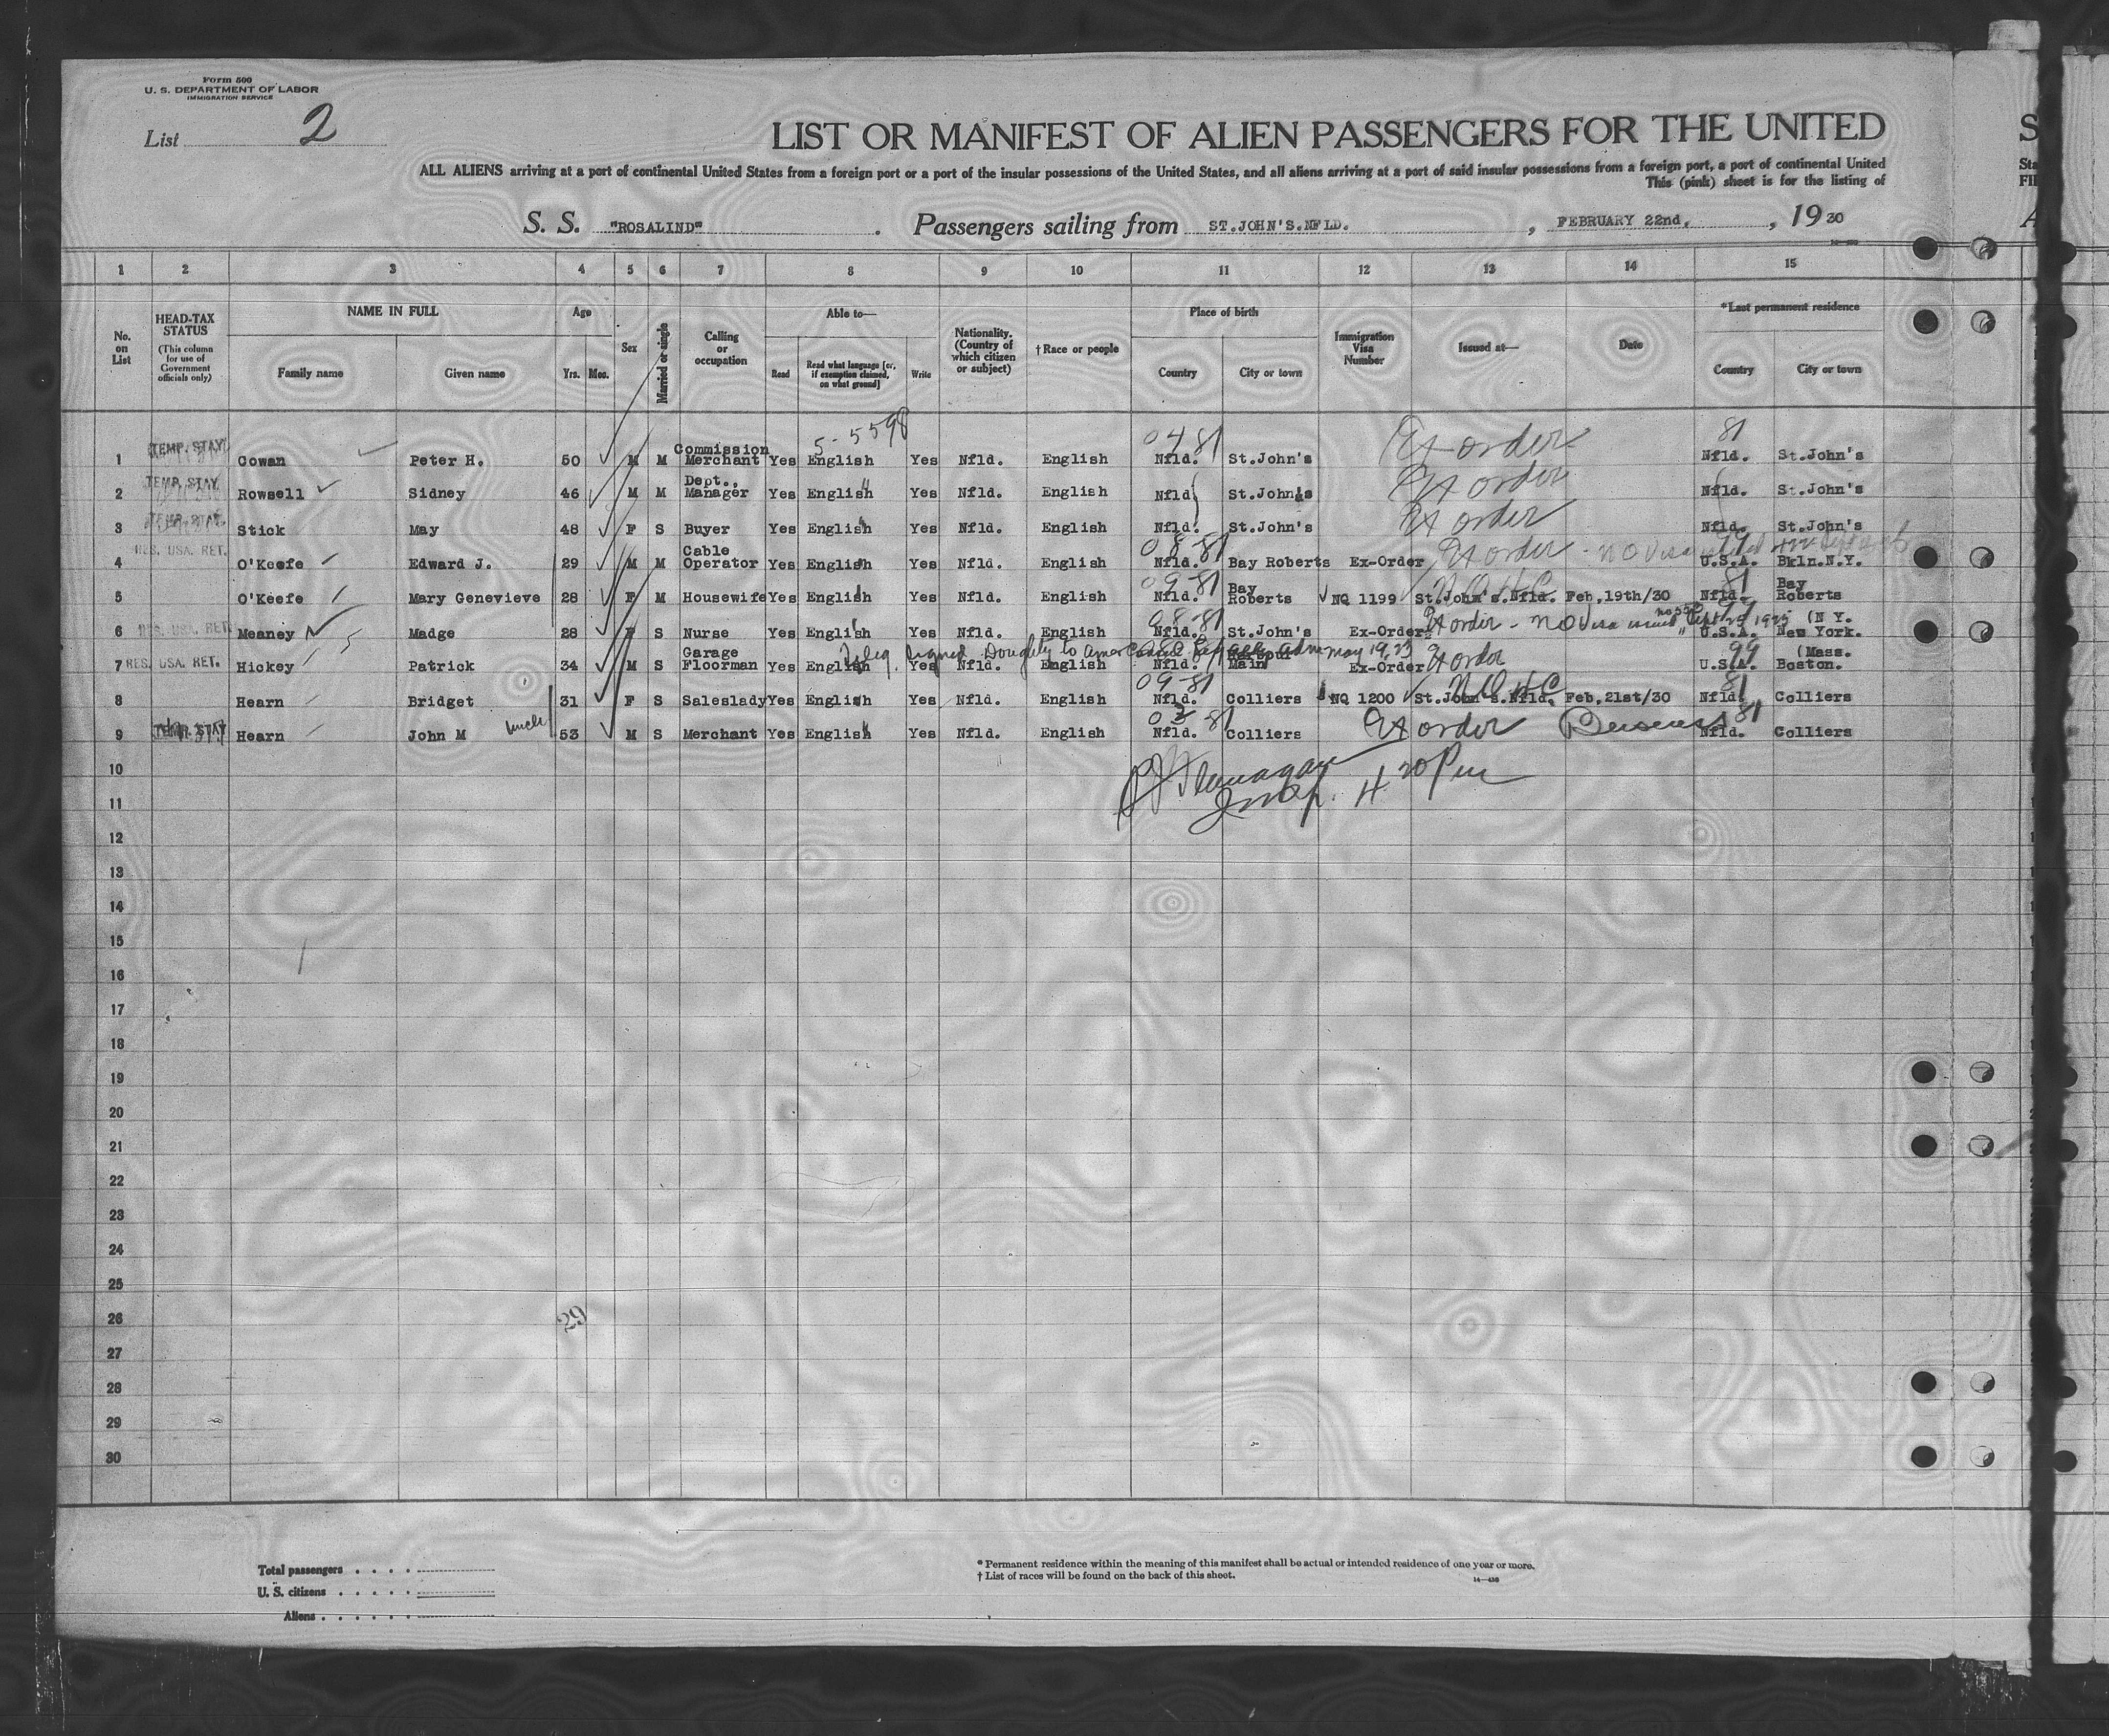 Form 500
U. S. DEPARTMENT OF LABOR
IMMIGRATION SERVICE
List 2
LIST OR MANIFEST OF ALIEN PASSENGERS FOR THE UNITED
ALL ALIENS arriving at a port of continental United States from a foreign port or a port of the insular possessions of the United States, and all aliens arriving at a port of said insular possessions from a foreign port, a port of continental United
This (pink) sheet is for the listing of
S. S. "ROSALIND" . Passengers sailing from ST.JOHN'S.NFLD. , FEBRUARY 22nd, , 19 30
1 2 3 4 5 6 7 8 9 10 11 12 13 14 15
No. on List
HEAD-TAX STATUS
(This column for use of Government officials only)
NAME IN FULL
Family name Given name
Age
Yrs. Mos.
Sex
Married or single
Calling or occupation
Able to—
Read Read what language [or, if exemption claimed, on what ground] Write
Nationality. (Country of which citizen or subject)
† Race or people
Place of birth
Country City or town
Immigration Visa Number
Issued at—
Date
*Last permanent residence
Country City or town
5-5598 04 81 81
1 TEMP. STAY Gowan Peter H. 50 M M Commission Merchant Yes English Yes Nfld. English Nfld. St.John's Ex order Nfld. St.John's
2 TEMP. STAY Rowsell Sidney 46 M M Dept., Manager Yes English Yes Nfld. English Nfld St.John's Ex order Nfld. St.John's
3 TEMP. STAY Stick May 48 F S Buyer Yes English Yes Nfld. English Nfld. St.John's Ex order Nfld. St.John's
4 RES. USA. RET. O'Keefe Edward J. 29 M M Cable Operator Yes English Yes Nfld. English 08-81 Nfld. Bay Roberts Ex-Order Ex order - no visa U.S.A. Bkln.N.Y.
5 O'Keefe Mary Genevieve 28 F M Housewife Yes English Yes Nfld. English 09-81 Nfld. Bay Roberts NQ 1199 St.John's.Nfld. Feb,19th/30 81 Nfld. Bay Roberts
6 RES. USA. RET. Meaney Madge 28 F S Nurse Yes English Yes Nfld. English 08-81 Nfld. St.John's Ex-Order Ex order - no visa issued Sept 25 1925 U.S.A. (N Y. New York.
7 RES. USA. RET. Hickey Patrick 34 M S Garage Floorman Yes English Yes Nfld. English Nfld. Harbour Main Ex-Order Ex order 99 U.S.A. (Mass. Boston.
signed Doughty to Amer Consul May 19, 23
8 Hearn Bridget 31 F S Saleslady Yes English Yes Nfld. English 09-81 Nfld. Colliers NQ 1200 St.John's.Nfld. Feb,21st/30 81 Nfld. Colliers
9 TEMP. STAY Hearn John M uncle 53 M S Merchant Yes English Yes Nfld. English Nfld. Colliers Ex order 81 Nfld. Colliers
10
Flanagan
Insp. 4 20 Pm
11
12
13
14
15
16
17
18
19
20
21
22
23
24
25
26 29
27
28
29
30
Total passengers . . . .
U. S. citizens . . . . .
Aliens . . . . . .
* Permanent residence within the meaning of this manifest shall be actual or intended residence of one year or more.
† List of races will be found on the back of this sheet.
14—436